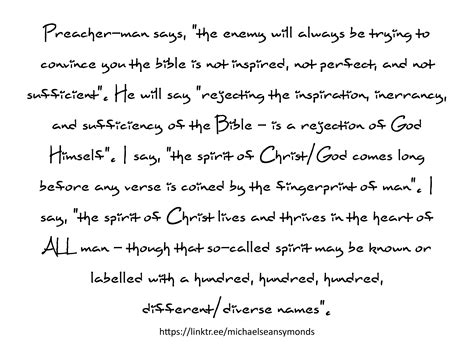 Preacher-man says, "the enemy will always be trying to
convince you the bible is not inspired, not perfect, and not
sufficient". He will say "rejecting the inspiration, inerrancy,
and sufficiency of the Bible - is a rejection of God
Himself". I say, "the spirit of Christ/God comes long
before any verse is coined by the fingerprint of man". I
say, "the spirit of Christ lives and thrives in the heart of
ALL man - though that so-called spirit may be known or
labelled with a hundred, hundred, hundred,
different/diverse names".
https://linktr.ee/michaelseansymonds